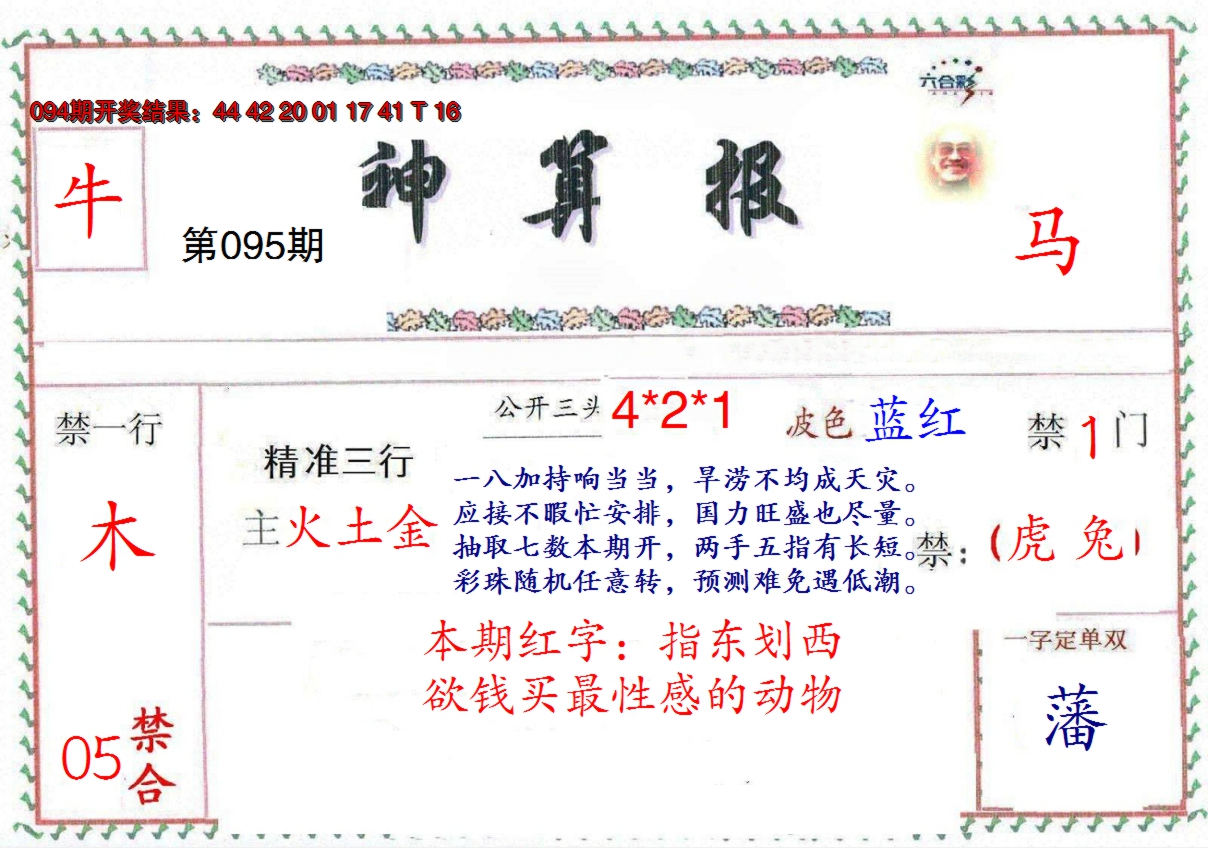 六合彩
094期开奖结果：44 42 20 01 17 41 T 16
牛
第095期
神算报
马
禁一行
木
05 禁合
精准三行
主火土金
公开三头 4*2*1
波色 蓝红
禁1门
禁：（虎 兔）
一八加持响当当，旱涝不均成天灾。
应接不暇忙安排，国力旺盛也尽量。
抽取七数本期开，两手五指有长短。
彩珠随机任意转，预测难免遇低潮。
本期红字：指东划西
欲钱买最性感的动物
一字定单双
藩